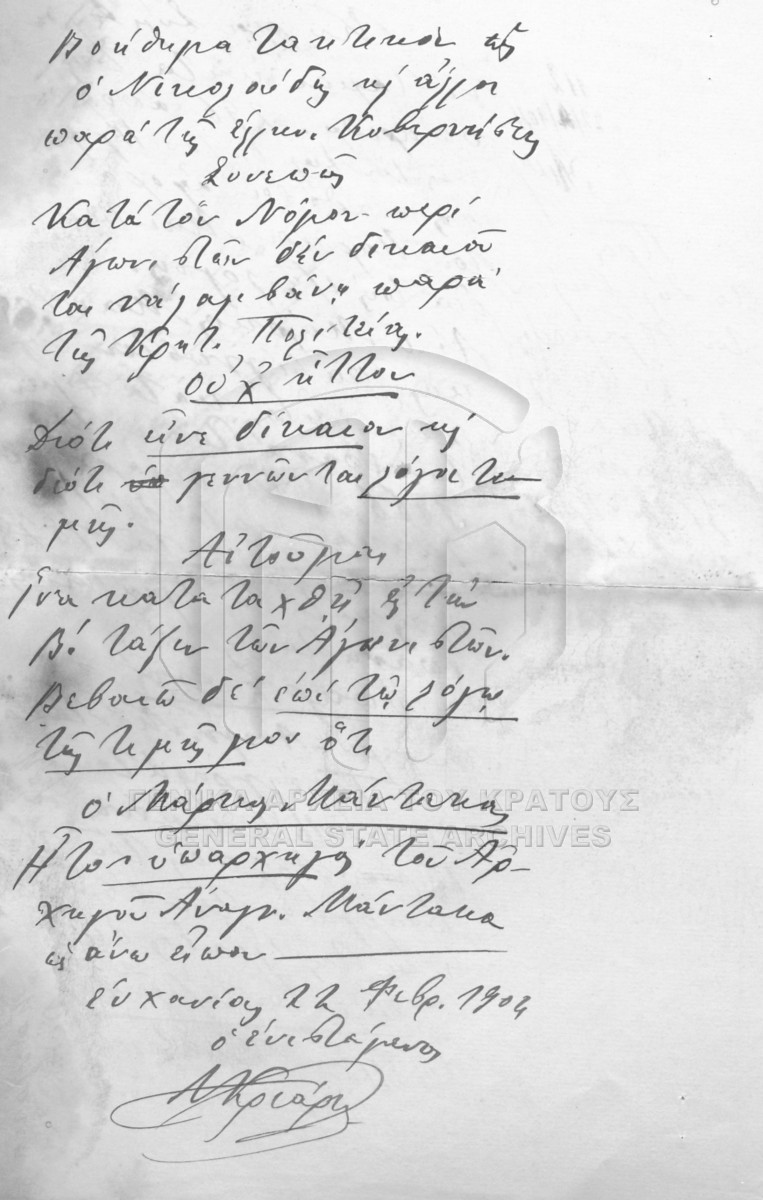 Βοήθημα τακτικὸν ὡς
ὁ Νικολούδης κ' ἄλλοι
παρὰ τῆς Ἑλλην. Κυβερνήσεως
Συνεπῶς
Κατὰ τὸν Νόμον περὶ
Ἀγωνιστῶν δὲν δικαιοῦ
ται νὰ λαμβάνῃ παρὰ
τῆς Κρητ. Πολιτείας.
Οὐχ ἧττον
Διότι εἶνε δίκαιον κ'
διότι γεννῶνται λόγοι τι
μῆς.
Αἰτοῦμαι
ἵνα καταταχθῇ εἰς τὴν
Β! τάξιν τῶν Ἀγωνιστῶν.
Βεβαιῶ δὲ ἐπὶ τῷ λόγῳ
τῆς τιμῆς μου ὅτι
ὁ Μάρκος Μάντακας
Ἦτον ὑπαρχηγὸς τοῦ Ἀρ-
χηγοῦ Ἀναγν. Μάντακα
ὡς ἄνω εἶπον
ἐν Χανίοις 22 Φεβρ. 1904
ὁ ἐνιστάμενος
Κριάρης
ΓΕΝΙΚΑ ΑΡΧΕΙΑ ΤΟΥ ΚΡΑΤΟΥΣ
GENERAL STATE ARCHIVES